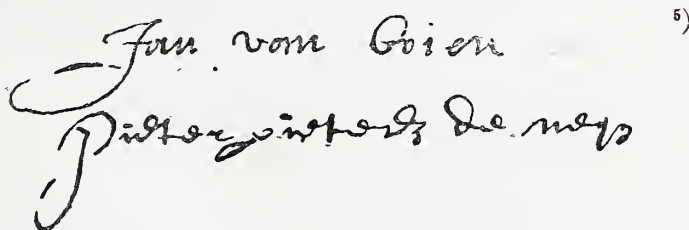 5)
Jan van Goien
Pieter pietersz de neyn